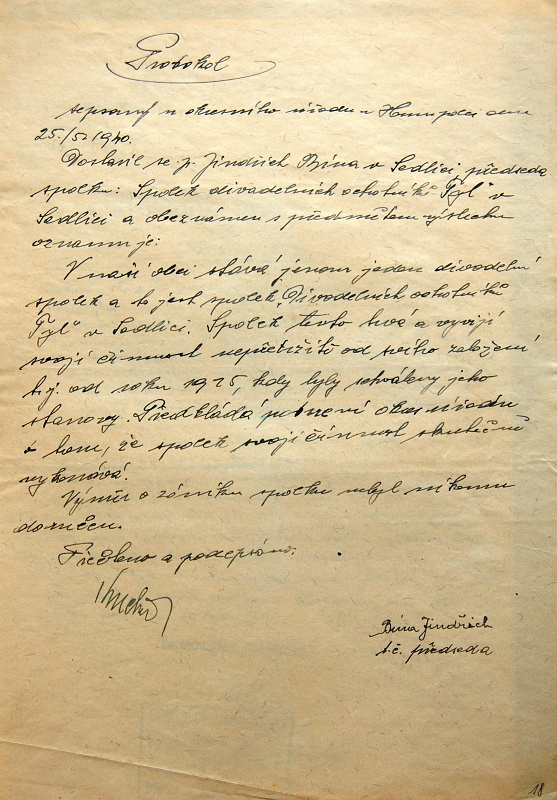 Protokol
sepsaný u okresního úřadu v Humpolci dne
25./5. 1940.
Dostavil se p. Jindřich Bína v Sedlici předseda
spolku: Spolek divadelních ochotníků "Tyl" v
Sedlici a obeznámen s předmětem výslechu
oznamuje:
V naší obci stává jenom jeden divadelní
spolek a to jest spolek "Divadelních ochotníků
Tyl" v Sedlici. Spolek tento trvá a vyvíjí
svoji činnost nepřetržitě od svého založení
t.j. od roku 1925, kdy byly schváleny jeho
stanovy. Předkládá potvrzení obec. úřadu
o tom, že spolek svoji činnost skutečně
vykonává.
Výměr o zániku spolku nebyl nikomu
doručen.
Přečteno a podepsáno.
Bína Jindřich
t.č. předseda
18